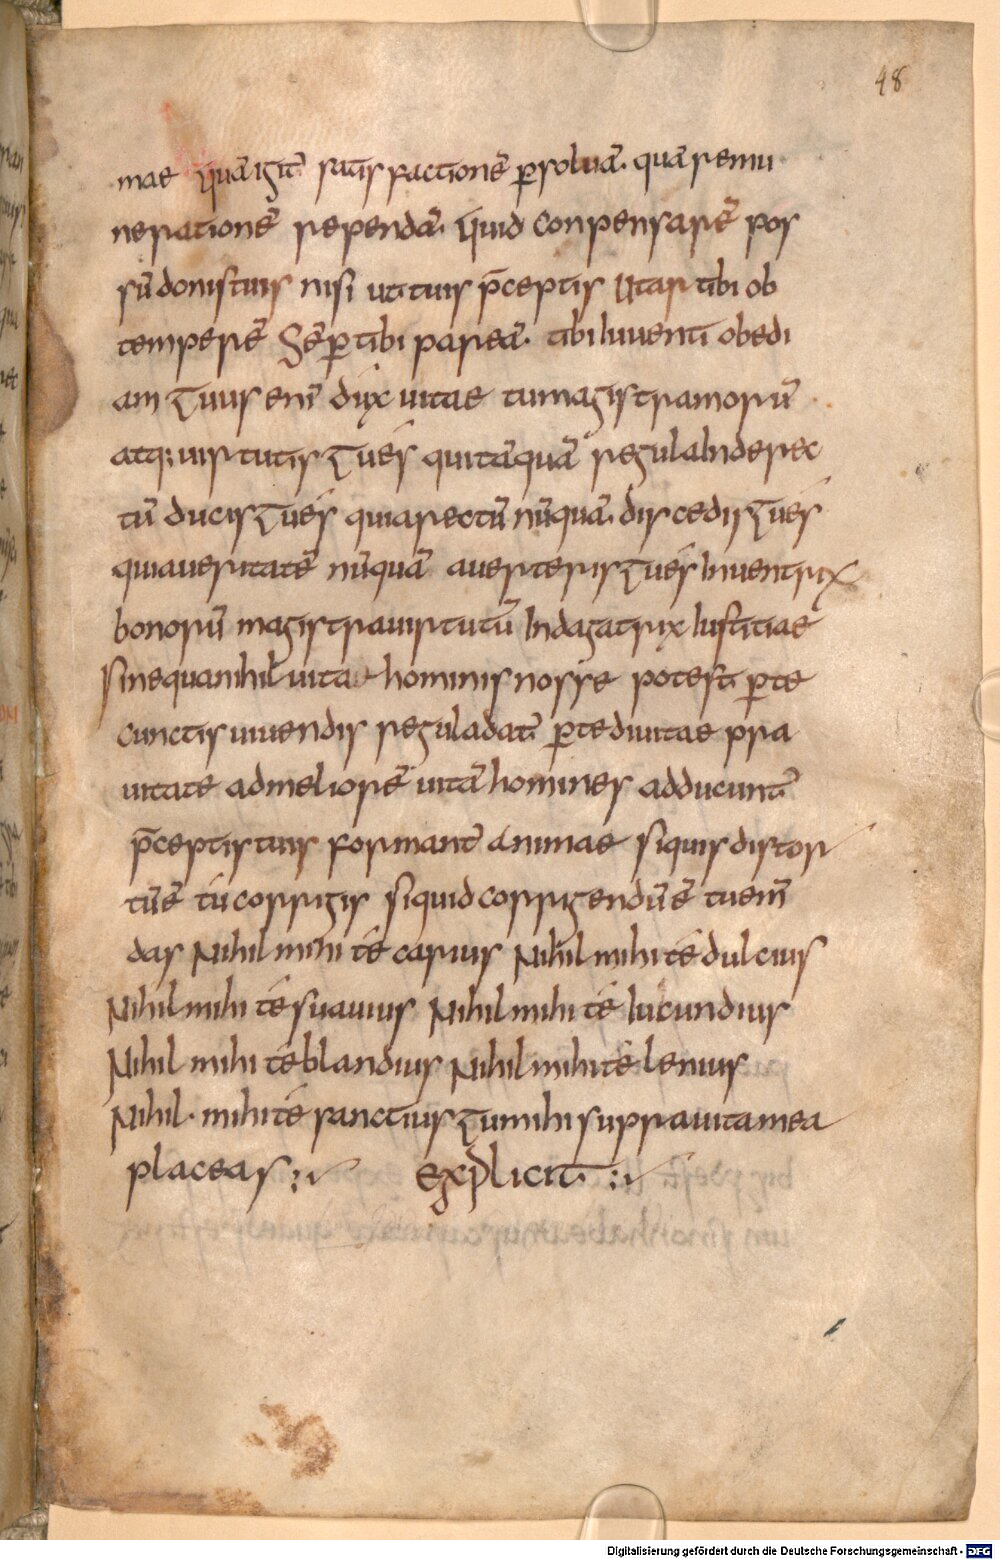 48
mae Quā igit̄ satis factionē p̄soluā. quā remu
nerationē rependā. Quid conpensarē pos
sū donis tuis nisi ut tuis p̄ceptis Utar tibi ob
temperē Sēp tibi pareā. tibi Iuuenti obedi
am Tu uis enī dux uitae tu magistra morū
atq; uirtutis Tu és qui tāquā regula Inderec
tū ducis Tu és qui a rectū nūquā. discedis Tu és
qui a ueritatē nūquā auerteris Tu és Inuentrix
bonorū magistra uirtutū Indagatrix Iustitiae
sine qua nihil uita hominis nosse potest p̄ te
cunctis uiuendis regula dat̄ p̄ te diuitae pra
uitate ad meliorē uitā homines adducunt̄
p̄ceptis tuis formant̄ animae si quis distor
tūē tu corrigis si quid corrigendūē tu em̄
das Nihil mihi té carius Nihil mihi té dulcius
Nihil mihi té suauius Nihil mihi té Iucundius
Nihil mihi té blandius Nihil mihi té lenius
Nihil. mihi té sanctius Tu mihi supra uita mea
placeas:; explicit. :;
Digitalisierung gefördert durch die Deutsche Forschungsgemeinschaft - DFG